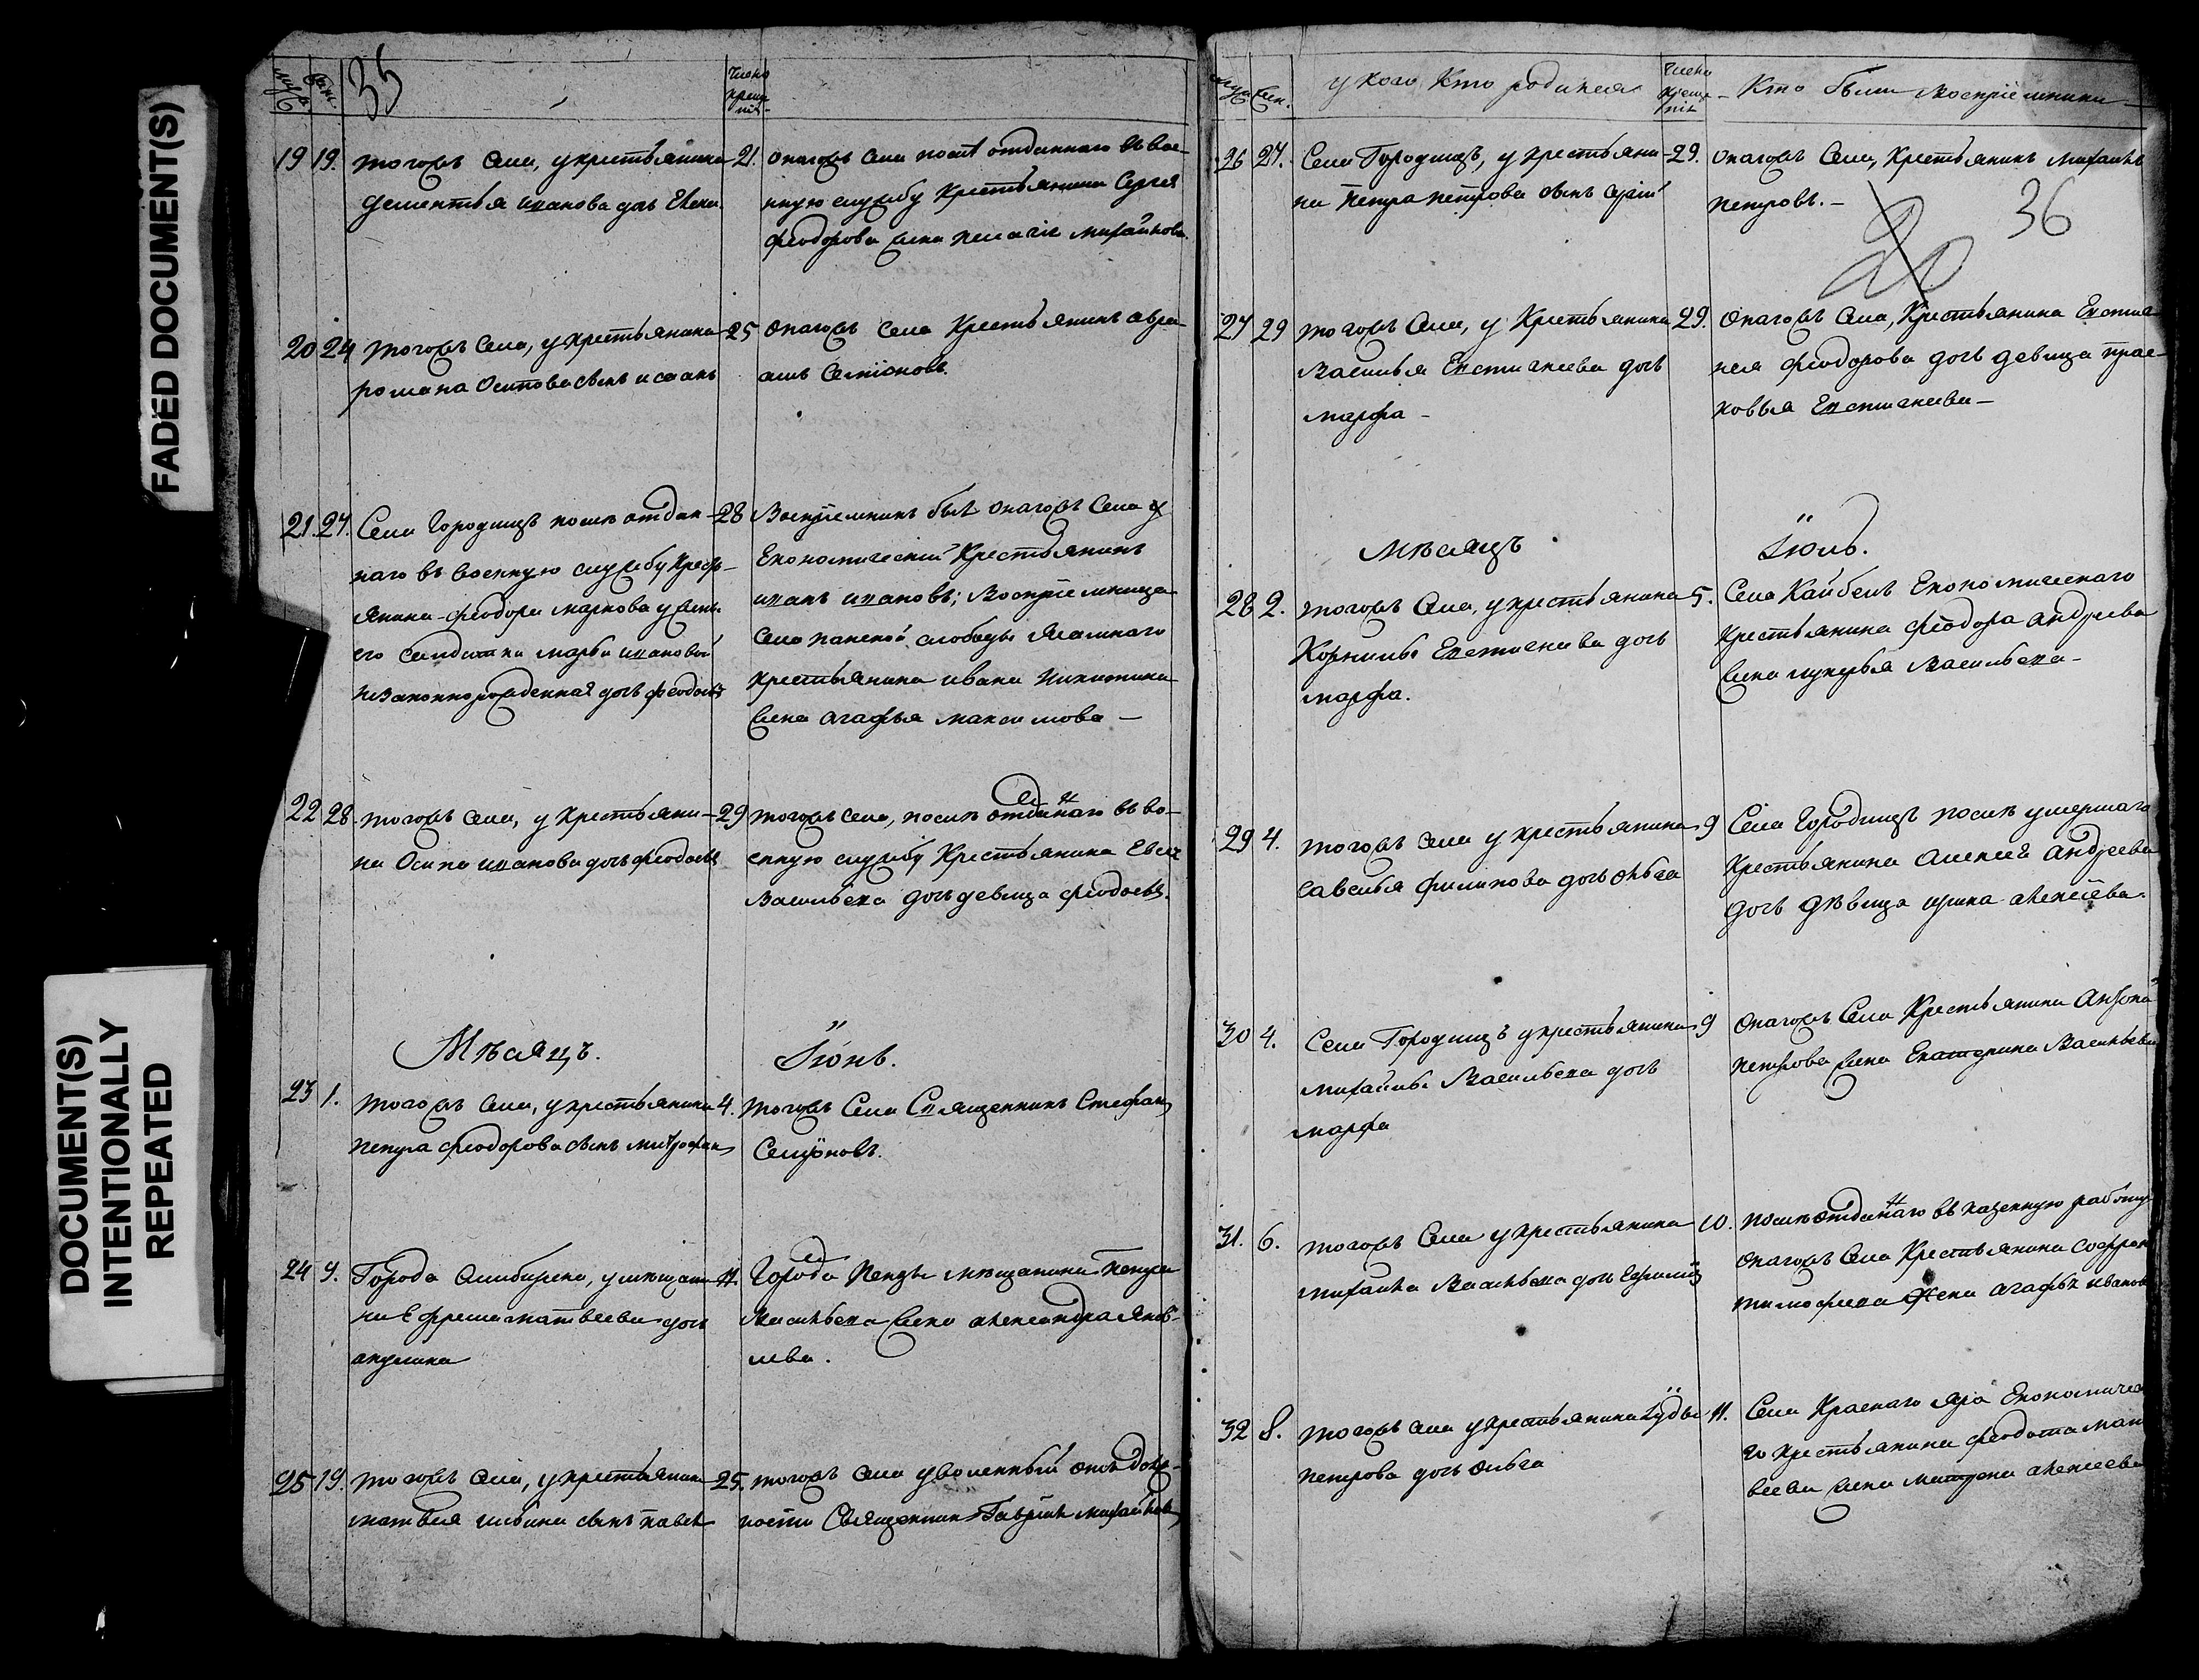 FADED DOCUMENT(S)
DOCUMENT(S)
INTENTIONALLY
REPEATED
35
число
креще
нія
19 19. тогожъ села, у крестьянина
дементья иванова дочь Елена.
21. онагожъ села послѣ отданнаго въ вое-
нную службу крестьянина Сергея
феодорова жена пелагія михайлова.
20 24 тогожъ села, у крестьянина
романа Осипова сынъ исаакъ
25 онагожъ села крестьянинъ авра-
амъ Семіоновъ.
21. 27. Села Городищъ послѣ отдан-
наго въ военную службу крест-
янина феодора маркова у жены
его салдатки марьи ивановой
незаконнорожденная дочь феодосья
28 Воспріемникъ былъ онагожъ села
Економическій крестьянинъ
иванъ ивановъ; воспріемница
села панской слободы ясашнаго
крестьянина ивана никитина
жена агафья максимова —
22 28. тогожъ села, у крестьяни-
на Осипа иванова дочь феодосья
29 тогожъ села, послѣ отданнаго въ во-
енную службу крестьянина
Васильева дочь девица феодосья.
Мѣсяцъ.
Іюнь.
23 1. тогожъ села, у крестьянина
петра феодорова сынъ митрофанъ
4. тогожъ села Священникъ Стефанъ
Семионовъ.
24 9. Города Симбирска, у мѣщани-
на Ефрема матвеева дочь
акулина
11. Города Пензы мѣщанина Петра
Васильева жена александра яков-
лева.
25 19. тогожъ села, у крестьянина
матвея ильина сынъ павелъ
25. тогожъ села уволенный отъ долж-
ности Священникъ Гавріилъ михайловъ
у кого кто родился
число
креще
нія
Кто были воспріемники
26 27. Села Городищъ, у крестьяни-
на Петра петрова сынъ сергій
29. онагожъ села, крестьянинъ михаилъ
петровъ. —
36
27 29 тогожъ села, у крестьянина
Василья Евстигнеева дочь
марфа —
29. онагожъ села, крестьянина Евстиг-
нея феодорова дочь девица прас-
ковья Евстигнеева —
Мѣсяцъ
Іюль.
28 2. тогожъ села, у крестьянина
Корнилы Евстигнеева дочь
марфа.
5. Села Кайбелъ Економическаго
крестьянина феодора андреева
жена лукерья Васильева —
29 4. тогожъ села у крестьянина
савелья филипова дочь ольга
9 Села Городищъ послѣ умершаго
крестьянина алексея андреева
дочь дѣвица ирина алексеева.
30 4. Села Городищъ у крестьянина
михайлы Васильева дочь
марфа
9 онагожъ села крестьянина антона
петрова жена Екатерина Васильева
31. 6. тогожъ села у крестьянина
михаила Васильева дочь
10. послѣ отданнаго въ казенную работу
онагожъ села крестьянина софрона
тимофеева жена агафья иванова
32 8. тогожъ села у крестьянина Іуды
петрова дочь ольга
11. Села Краснаго яра Економическа
го крестьянина феодота мат
веева жена матрена алексеева